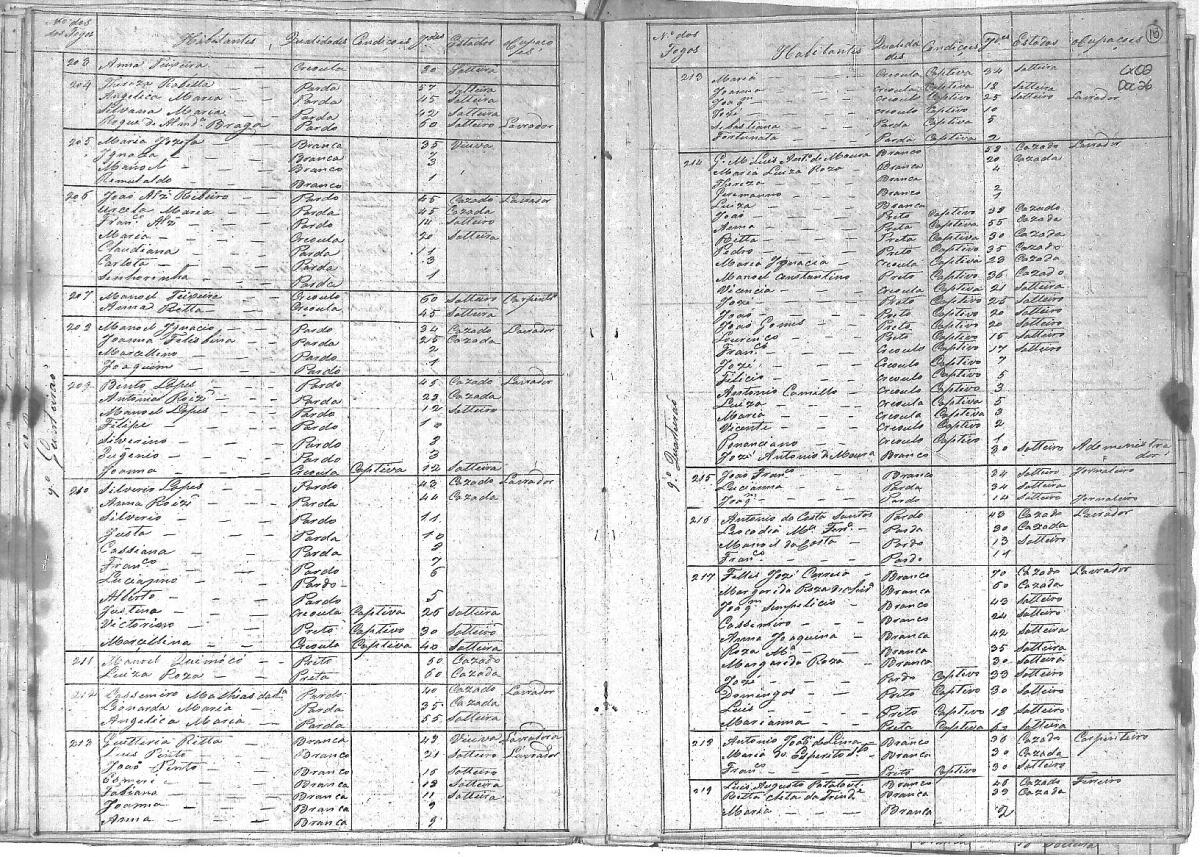 Nº dos Fogos Habitantes Qualidades Condiçoes Idades Estados
203 Anna Teixeira Creoula 30 Solteira
204 Thereza Rabella Parda 57 Solteira
Angelica Maria Parda 45 Solteira
Silvana Maria Parda 42 Solteira
Roque de Braga Pardo 50 Solteiro Lavrador
205 Maria Jozefa Branca 35 Viuva
Ignacia Branca
Manoel Branco 3
Branco 1
206 João Alz Ribeiro Pardo 45 Cazado Lavrador
Urcela Maria Parda 45 Cazada
Franco Alz Pardo 14 Solteiro
Maria Creoula 20 Solteira
Claudiana Parda 11
Carlota Parda 3
Senhorinha Parda 1
207 Manoel Teixeira Creoulo 60 Solteiro Carpinto
Anna Ritta Creoula 45 Solteira
Manoel Ignacio Pardo 34 Cazado Lavrador
Joanna Felisbina Parda 25 Cazada
Marcellino Pardo 2
Joaquim Pardo 1
209 Bento Lopes Pardo 45 Cazado Lavrador
Antonia Roiz Parda Cazada
Manoel Lopes Pardo 12 Solteiro
Filipe Pardo
Silverino Pardo
Eugenio Pardo 3
Joanna Creoula Captiva 12 Solteira
210 Silverio Lopes Pardo 43 Cazado Lavrador
Anna Roiz Parda 44 Cazada
Silverio Pardo 11
Justa Parda 10
Cassiana Parda
Franco Pardo 7
Pardo 6
Alberto Pardo 5
Justina Creoula Captiva 25 Solteira
Victorino Preto Captivo 30 Solteiro
Marcellina Creoula Captiva 40 Solteira
211 Manoel Preto 50 Cazado
Luiza Roza Preta 60 Cazada
212 Cassemiro Mathias Pardo 40 Cazado Lavrador
Leonarda Maria Parda 35 Cazada
Angelica Maria Parda 55 Solteira
213 Quitteria Ritta Branca Viuva Lavradora
Luis Pinto Branco 21 Solteiro Lavrador
João Pinto Branco Solteiro
Branca Solteira
Fabiana Branca 11 Solteira
Joanna Branca 9
Anna Branca 9
9º Quarteirão
Nº dos Fogos Habitantes Qualidades Condições Estados Ocupações
213 Maria Creoula Captiva 34 Solteira
Joanna Creoula Captiva 18 Solteira
Joaqm Creoulo Captivo 25 Solteiro Lavrador
Jozé Creoulo Captivo 10
Sebastiana Parda Captiva 5
Fortunata Parda Captiva 2
214 G. M. Luis Anto de Moura Branco 52 Cazado Lavrador
Maria Luiza Roza Branca 20 Cazada
Thereza Branca 4
Branco 2
Luiza Branca 1
João Preto Captivo 38 Cazado
Anna Preta Captiva 55 Cazada
Ritta Preta Captiva 30 Cazada
Pedro Preto Captivo 35 Cazado
Maria Ignacia Creoula Captiva 23 Cazada
Manoel Constantino Preto Captivo 36 Cazado
Vicencia Creoula Captiva 21 Solteira
Jozé Preto Captivo 25 Solteiro
João Preto Captivo 20 Solteiro
João Gomes Preto Captivo 20 Solteiro
Lourenço Preto Captivo 15 Solteiro
Franco Creoulo Captivo 17 Solteiro
Jozé Creoulo Captivo 7
Filicio Creoulo Captivo 5
Antonio Camillo Creoulo Captivo 3
Luiza Creoula Captiva 5
Maria Creoula Captiva 3
Vicente Creoulo Captivo 2
Venanciano Creoulo Captivo 1
Jozé Antonio de Moura Branco 30 Solteiro Administrador
215 João Franco Branco 24 Solteiro Jornaleiro
Lucianna Parda 34 Solteira
Joaqm Pardo 14 Solteiro Jornaleiro
216 Antonio da Costa Santos Pardo 43 Cazado Lavrador
Leocadia Ma Parda 30 Cazada
Manoel da Costa Pardo 13 Solteiro
Franco Pardo 11
217 Felis Jozé Correia Branco 70 Cazado Lavrador
Margarida Roza Branca 60 Cazada
Joaqm Simpelicio Branco 43 Solteiro
Cassemiro Branco 24 Solteiro
Anna Joaquina Branca 42 Solteira
Roza Ma Branca 35 Solteira
Margarida Roza Branca 30 Solteira
Jozé Pardo Captivo 33 Solteiro
Domingos Preto Captivo 30 Solteiro
Luis Preto Captivo 18 Solteiro
Marianna Preta Captiva 60 Solteira
Antonio João de Lima Branco 38 Cazado Carpinteiro
Maria do Espirito Sto Branca 30 Cazada
Franco Preto Captivo 30 Solteiro
219 Luis Augusto Branco 46 Cazado Ferreiro
Ritta Branca 39 Cazada
Maria Branca 2
9º Quarteirão